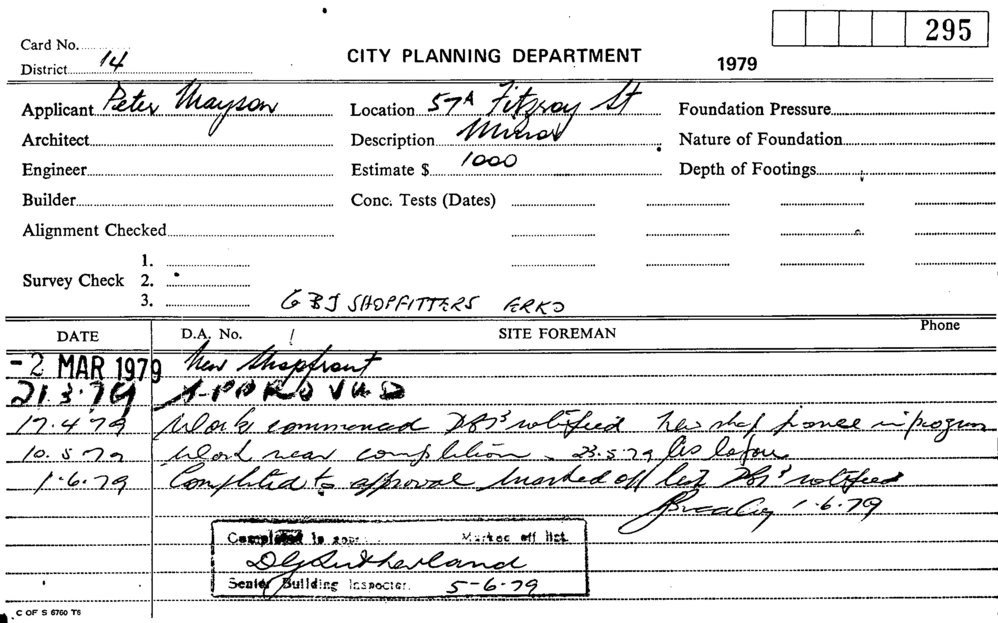 295
Card No.
CITY PLANNING DEPARTMENT 1979
District 14
Applicant Peter Mayson Location 57A Fitzroy St Foundation Pressure
Architect Description Minor Nature of Foundation
Engineer Estimate $ 1000 Depth of Footings
Builder Conc. Tests (Dates)
Alignment Checked
1.
Survey Check 2.
3. SHOPFITTERS
DATE D.A. No. SITE FOREMAN Phone
-2 MAR 1979 New Shopfront
21.3.79 APPROVED
17.4.79 Work commenced notified new shop in progress
10.5.79 Work near completion - 23.5.79 as before
1.6.79 Completed to approval marked off list notified
1.6.79
Completed to Marked off list
D G Sutherland
Senior Building Inspector. 5-6-79
C OF S 6760 T6